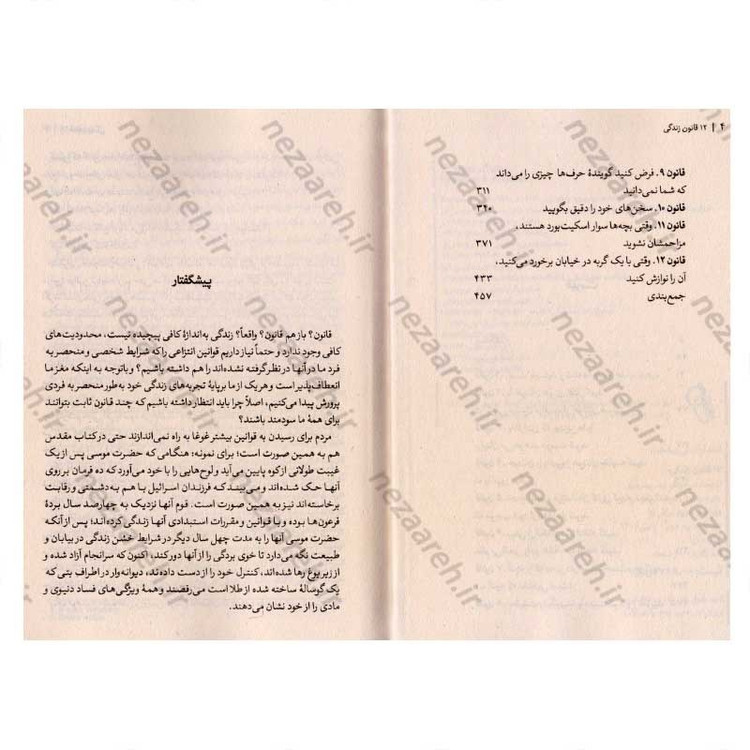 ۴ | ۱۲ قانون زندگی
قانون ۹. فرض کنید گویندهٔ حرف‌ها چیزی را می‌داند
که شما نمی‌دانید ۳۱۱
قانون ۱۰. سخن‌های خود را دقیق بگویید ۳۴۰
قانون ۱۱. وقتی بچه‌ها سوار اسکیت‌بورد هستند،
مزاحمشان نشوید ۳۷۱
قانون ۱۲. وقتی با یک گربه در خیابان برخورد می‌کنید،
آن را نوازش کنید ۴۳۳
جمع‌بندی ۴۵۷
پیشگفتار
قانون؟ باز هم قانون؟ واقعاً؟ زندگی به‌اندازهٔ کافی پیچیده نیست، محدودیت‌های
کافی وجود ندارد و حتماً نیاز داریم قوانین انتزاعی را که شرایط شخصی و منحصر به
فرد ما در آنها در نظر گرفته نشده‌اند را هم داشته باشیم؟ و باتوجه به اینکه مغز ما
انعطاف‌پذیر است و هریک از ما برپایهٔ تجربه‌های زندگی خود به‌طور منحصر به فردی
پرورش پیدا می‌کنیم، اصلاً چرا باید انتظار داشته باشیم که چند قانون ثابت بتوانند
برای همهٔ ما سودمند باشند؟
مردم برای رسیدن به قوانین بیشتر غوغا به راه نمی‌اندازند حتی در کتاب مقدس
هم به همین صورت است؛ برای نمونه: هنگامی که حضرت موسی پس از یک
غیبت طولانی از کوه پایین می‌آید و لوح‌هایی را با خود می‌آورد که ده فرمان بر روی
آنها حک شده‌اند و می‌بیند که فرزندان اسرائیل با هم به‌دشمنی و رقابت
برخاسته‌اند نیز به همین صورت است. قوم آنها نزدیک به چهارصد سال بردهٔ
فرعون‌ها بوده و با قوانین و مقررات استبدادی آنها زندگی کرده‌اند؛ پس از آنکه
حضرت موسی آنها را به مدت چهل سال دیگر در شرایط خشن زندگی در بیابان و
طبیعت نگه می‌دارد تا خوی بردگی را از آنها دور کند، اکنون که سرانجام آزاد شده و
از زیر یوغ رها شده‌اند، کنترل خود را از دست داده‌ند، دیوانه‌وار در اطراف بتی که
یک گوسالهٔ ساخته شده از طلا است می‌رقصند و همهٔ ویژگی‌های فساد دنیوی و
مادی را از خود نشان می‌دهند.
nezaareh.ir
nezaareh.ir
nezaareh.ir
nezaareh.ir
nezaareh.ir
nezaareh.ir
nezaareh.ir
nezaareh.ir
nezaareh.ir